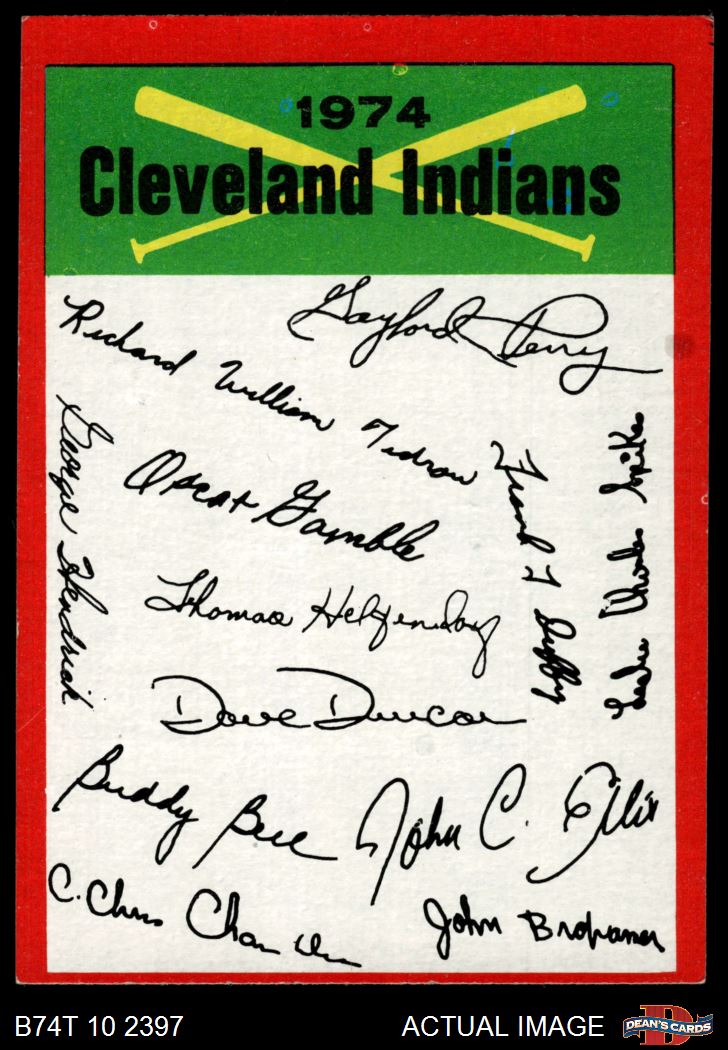 1974
Cleveland Indians
Gaylord Perry
Richard William Tidrow
George Hendrick
Oscar Gamble
Frank T Duffy
Leslie Charles Spikes
Thomas Hilgendorf
Dave Duncan
Buddy Bell
John C. Ellis
C. Chris Chambliss
John Brohamer
B74T 10 2397
ACTUAL IMAGE
D
DEAN'S CARDS